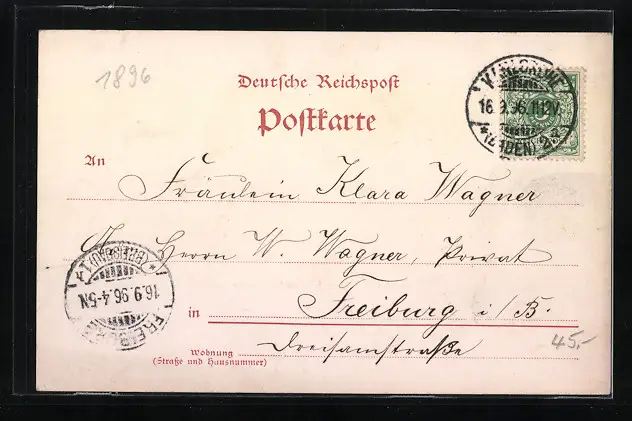 1896
Deutsche Reichspost
Postkarte
KARLSRUHE
16.9.96.11-12V.
*(BADEN) 2.a
5
An
Fräulein Klara Wagner
Herrn W. Wagner, Privat
(BREISGAU)
16.9.96.4-5N.
FREIBURG
in Freiburg i/B.
Wohnung Dreisamstraße
(Straße und Hausnummer)
45,-